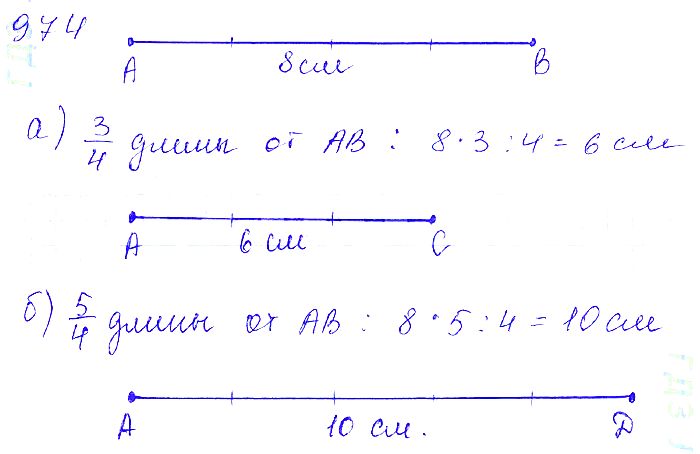 974
A 8 см B
а) 3/4 длины от AB : 8 · 3 : 4 = 6 см
A 6 см C
б) 5/4 длины от AB : 8 · 5 : 4 = 10 см
A 10 см. D